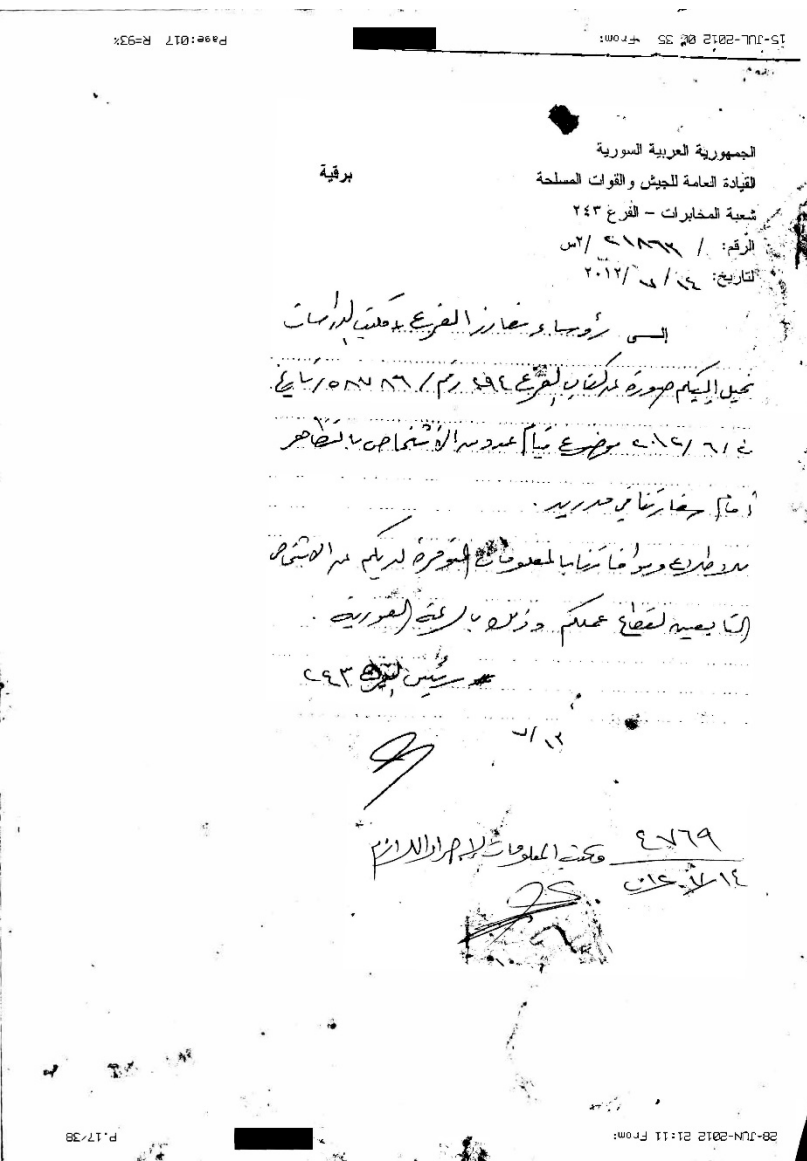 15-JUL-2012 00 35 From: Page:017 R=93%
الجمهورية العربية السورية
القيادة العامة للجيش والقوات المسلحة
برقية
شعبة المخابرات – الفرع ٢٤٣
الرقم: / ٢١٨٦٣ /٢س
التاريخ: ١٤ / ٧ /٢٠١٢
الـى رؤساء مفارز الفرع و مكتب الدراسات
نحيل إليكم صورة عن كتاب الفرع ٢٩٤ رقم / ٥٨٧٨٦ / تاريخ
٢٠١٢/٦/ موضوع قيام عدد من الأشخاص بالتظاهر
أمام سفارتنا في مدريد .
للاطلاع وموافاتنا بالمعلومات المتوفرة لديكم عن الاشخاص
التابعين لقطاع عملكم وذلك بالسرعة الفورية .
رئيس الفرع ٢٤٣
٧/١٣
٤٧٦٩ مكتب المعلومات لإجراء اللازم
١٤
28-JUN-2012 21:11 From: P.17/38